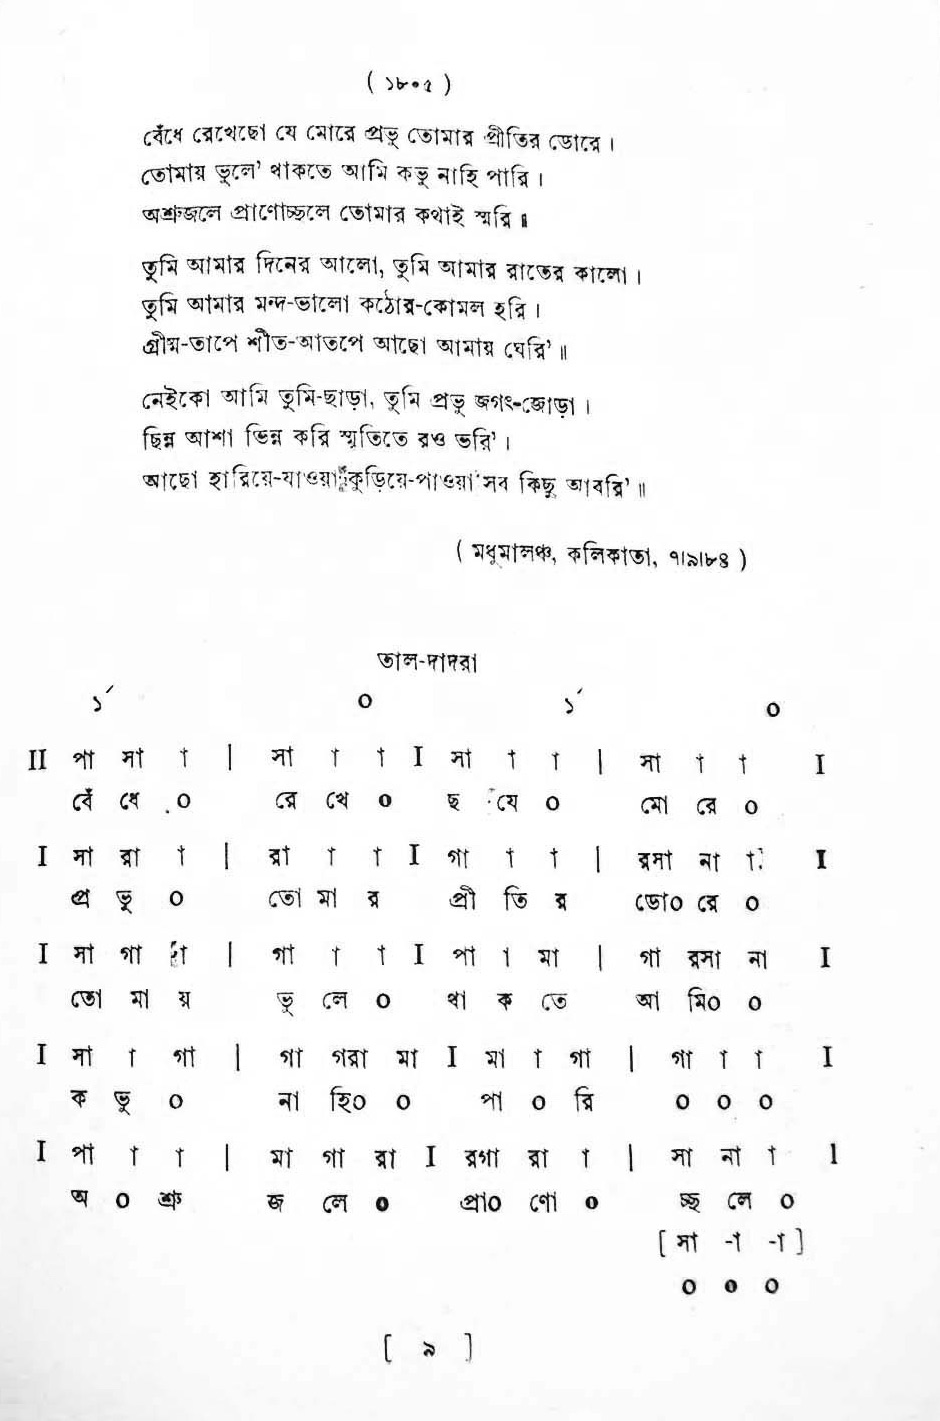 ( ১৮০৫ )
বেঁধে রেখেছো যে মোরে প্রভু তোমার প্রীতির ডোরে ।
তোমায় ভুলে’ থাকতে আমি কভু নাহি পারি ।
অশ্রুজলে প্রাণোচ্ছলে তোমার কথাই স্মরি ॥
তুমি আমার দিনের আলো, তুমি আমার রাতের কালো ।
তুমি আমার মন্দ-ভালো কঠোর-কোমল হরি ।
গ্রীষ্ম-তাপে শীত-আতপে আছো আমায় ঘেরি’ ॥
নেইকো আমি তুমি-ছাড়া, তুমি প্রভু জগৎ-জোড়া ।
ছিন্ন আশা ভিন্ন করি স্মৃতিতে রও ভরি’ ।
আছো হারিয়ে-যাওয়া কুড়িয়ে-পাওয়া সব কিছু আবরি’ ॥
( মধুমালঞ্চ, কলিকাতা, ৭।৯।৮৪ )
তাল-দাদরা
১´ ০ ১´ ০
II পা সা া | সা া া I সা া া | সা া া I
বেঁ ধে ০ রে খে ০ ছ যে ০ মো রে ০
I সা রা া | রা া া I গা া া | রসা না া I
প্র ভু ০ তো মা র প্রী তি র ডো০ রে ০
I সা গা া | গা া া I পা া মা | গা রসা না I
তো মা য় ভু লে ০ থা ক তে আ মি০ ০
I সা া গা | গা গরা মা I মা া গা | গা া া I
ক ভু ০ না হি০ ০ পা ০ রি ০ ০ ০
I পা া া | মা গা রা I রগা রা া | সা না া I
অ ০ শ্রু জ লে ০ প্রা০ ণো ০ চ্ছ লে ০
[ সা -া -া ]
০ ০ ০
[ ৯ ]